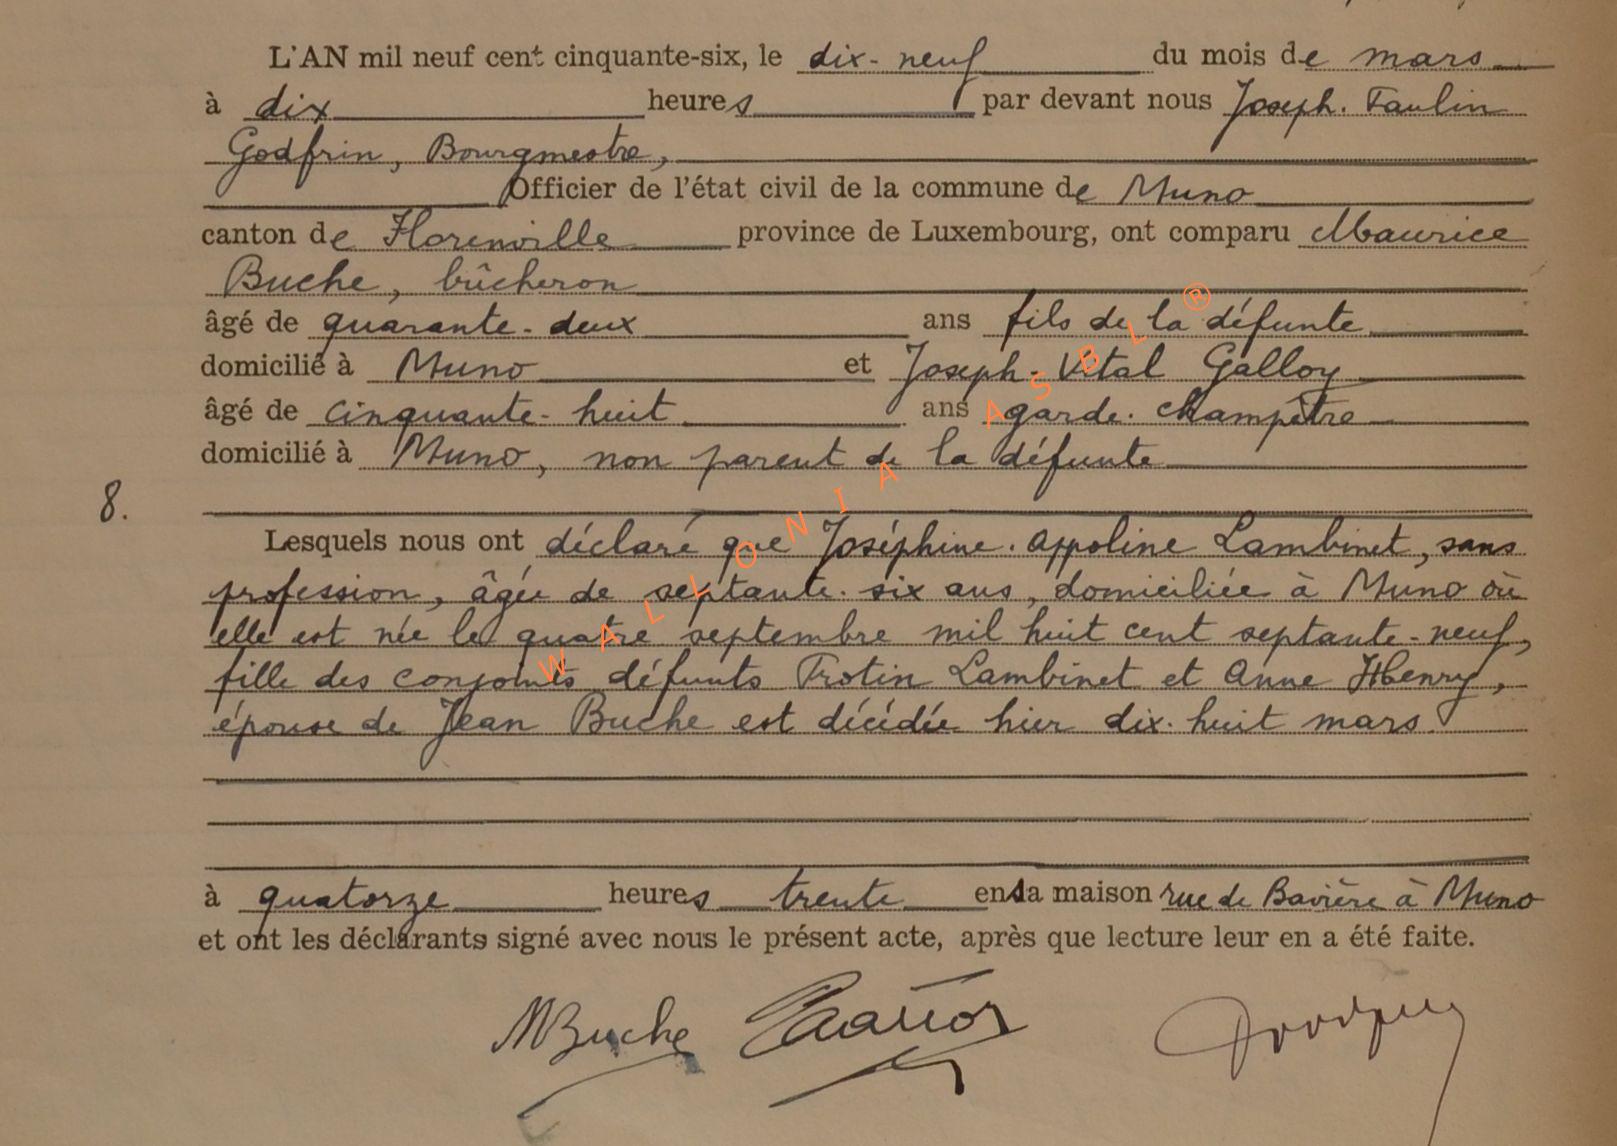 L'AN mil neuf cent cinquante-six, le dix-neuf du mois de mars
à dix heures par devant nous Joseph. Paulin
Godfrin, Bourgmestre,
Officier de l'état civil de la commune de Muno
canton de Florenville province de Luxembourg, ont comparu Maurice
Buche, bûcheron
âgé de quarante-deux ans fils de la défunte
domicilié à Muno et Joseph-Vital Galloy
âgé de cinquante-huit ans garde-champêtre
domicilié à Muno, non parent de la défunte
8.
Lesquels nous ont déclaré que Joséphine. Appoline Lambinet, sans
profession, âgée de septante-six ans, domiciliée à Muno où
elle est née le quatre septembre mil huit cent septante-neuf,
fille des conjoints défunts Trotin Lambinet et Anne Henry,
épouse de Jean Buche est décédée hier dix-huit mars.
à quatorze heures trente en sa maison rue de Bavière à Muno
et ont les déclarants signé avec nous le présent acte, après que lecture leur en a été faite.
MBuche
WALLONIA ASBL ®